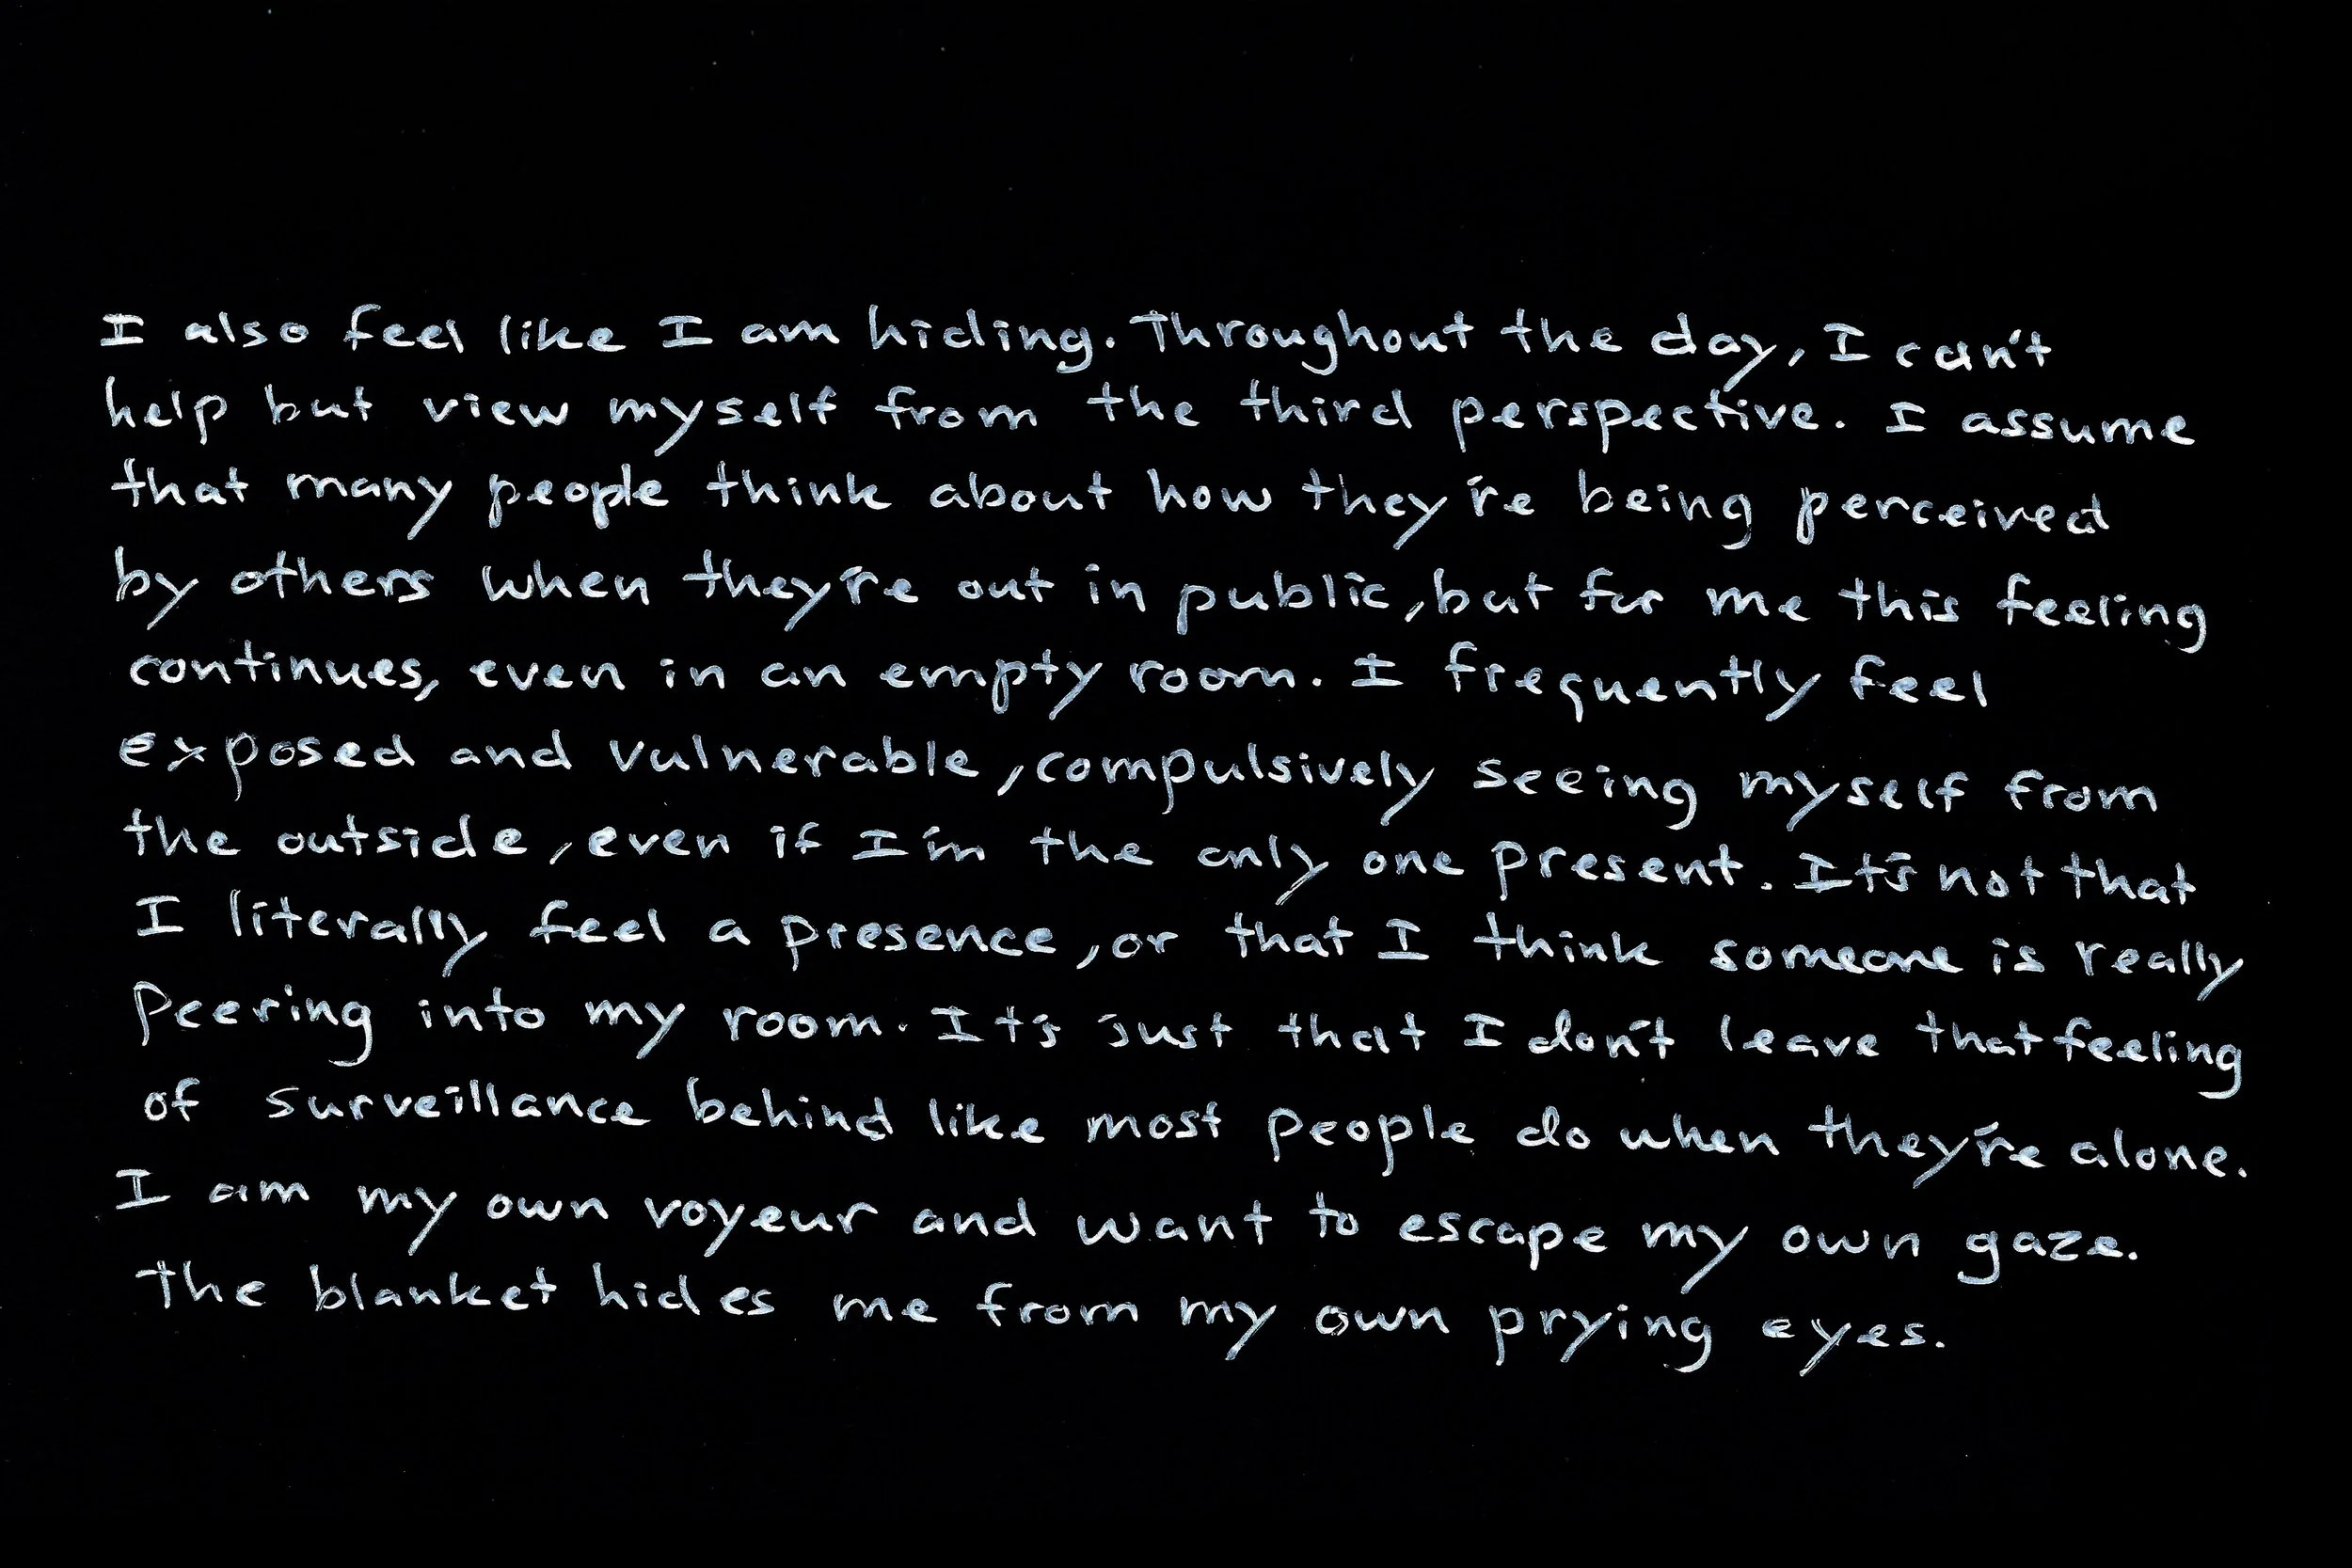 I also feel like I am hiding. Throughout the day, I can't
help but view myself from the third perspective. I assume
that many people think about how they're being perceived
by others when they're out in public, but for me this feeling
continues, even in an empty room. I frequently feel
exposed and vulnerable, compulsively seeing myself from
the outside, even if I'm the only one present. It's not that
I literally feel a presence, or that I think someone is really
peering into my room. It's just that I don't leave that feeling
of surveillance behind like most people do when they're alone.
I am my own voyeur and want to escape my own gaze.
The blanket hides me from my own prying eyes.